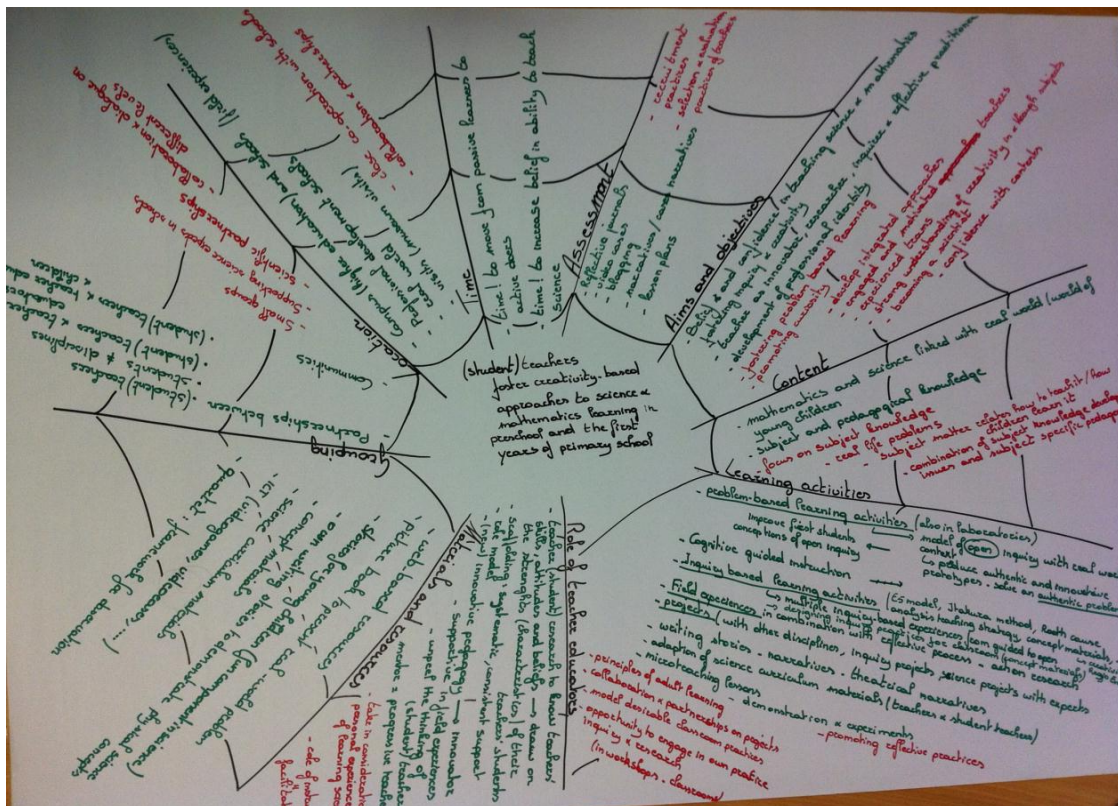 (student) teachers
foster creativity-based
approaches to science &
mathematics learning in
preschool and the first
years of primary school
Time
time! to move from passive learners to
active doers
time! to increase belief in ability to teach
science
Assessment
- reflective journals
- video cases
- blogging
- narratives / cases narratives
- lesson plans
- recruitment
practices
- selection & evaluation
practices of teachers
Aims and objectives
- Beliefs and confidence in teaching science & mathematics
- fostering inquiry & creativity
- teacher as innovator, researcher, inquirer & reflective practitioner
- development of professional identity
- fostering problem based learning
- promoting curiosity
- develop integrated approaches
- engaged and motivated teachers
- experienced teams
- strong understanding of creativity in & through subjects
- becoming a scientist
- confidence with contents
Content
- mathematics and science linked with real world (world of
young children
- subject and pedagogical knowledge
- focus on subject knowledge
- real life problems
- subject matter relates how to teach it / how
children learn it
- combination of subject knowledge
issues and subject specific
Learning activities
- problem-based learning activities (also in laboratories)
model of open inquiry with real world
context
↳ produce authentic and innovative
prototypes - solve an authentic problem
improve first students
conceptions of open inquiry
- Cognitive guided instruction
- Inquiry based learning activities (E5 model, root cause
analysis teaching strategy, concept materials
↳ multiple inquiry-based experiences from guided to open
↳ designing inquiry practices for classroom (concept materials)
- Field experiences in combination with reflective process - action research
- projects (with other disciplines, inquiry projects, science projects with experts
- writing stories - narratives - theatrical narratives
- adaption of science curriculum materials (teachers & student teachers)
- microteaching lessons
- demonstration & experiments
- promoting reflective practices
Role of teacher educators
- teacher (student) research to know teachers'
skills, attitudes and beliefs → draw on
the strengths (characteristics) of their
teachers students
- scaffolding: systematic, consistent support
- role model
- (new) innovative pedagogy → innovator
- supportive in field experiences
- unpeel the thinking of
(student) teacher
- mentor = progressive teacher
- take in consideration
personal experience
of learning
- principles of adult learning
- collaboration & partnerships on projects
- model desirable classroom practices
- opportunity to engage in own practice
inquiry & research
(in workshops - classrooms)
Materials and resources
- web based resources
- picture books (to present real-world problem
- stories for young children (fun component in science)
- own writing stories to demonstrate physical science
concepts
- concept materials
- science curriculum materials
- ICT (videogames, videocases, ...)
framework for observation
Grouping
- Partnerships between
• (student) teachers
& students ≠ disciplines
• (student) teachers & teacher
educators
• (student) teachers &
children
- Communities
- Small groups
- Supporting science experts in schools
- scientific partnerships
- collaboration & dialogue on
different levels
Location
- Campus (higher education) and schools (field experiences)
- Professional development schools
- real world visits (museum visits)
- close co-operation with schools
- collaboration & partnerships